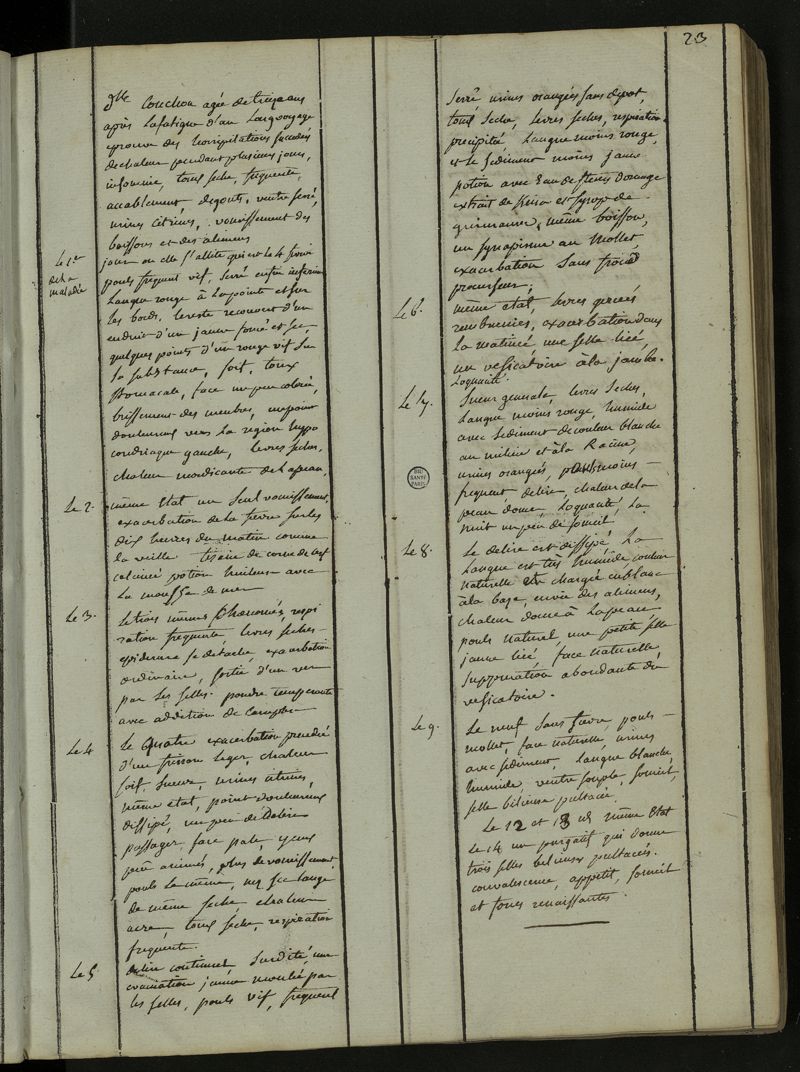 23
Dlle Couchou agée de treize ans
après la fatigue d'un long voyage
eprouve des horripilations succedées
de chaleur pendant plusieurs jours,
insomnie, toux seche, frequente,
accablement, degouts, ventre serré,
urines citrines, vomissement des
boissons et des alimens
Le 1er
de la
maladie
jour ou elle s'allite qui est le 4
pouls frequent vif, serré
langue rouge à la pointe et sur
les bords, le reste recouvert d'un
enduit d'un jaune foncé et
quelques points d'un rouge vif sur
sa substance, soif, toux
stomacale, face un peu colorée,
brisement des membres, un point
douloureux vers la region hypo
condriaque gauche, levres seches,
chaleur mordicante de la peau,
Le 2.
même etat un seul vomissement,
exacerbation de la fievre sur les
dix heures du matin comme
la veille tisane de corne de cerf
calcinée potion huileuse avec
la mousse de mer
Le 3.
le trois mêmes phénomènes, respi
ration frequente, levres seches
epiderme se detache, exacerbation
ordinaire, sortie d'un ver
par les selles. poudre temperante
avec addition de camphre
Le 4
Le quatre exacerbation precedée
d'un frisson leger, chaleur
soif, sueur, urines citrines,
même etat, point douloureux
dissipé, un peu de delire
passager, face pale, yeux
peu animés, plus de vomissement,
pouls le même, langue
de même seche chaleur
acre, toux seche, respiration
frequente.
Le 5
delire continuel, surdité, une
evacuation jaune moulée par
les selles, pouls vif, frequent
serré, urines orangées sans depot,
toux seche, levres seches, respiration
précipitée, langue moins rouge,
et le sediment moins jaune
potion avec eau de fleurs d'orange
extrait de kina et syrop de
guimauve, même boisson,
un synapisme au mollet,
exacerbation sans froid
precurseur;
Le 6.
même etat, levres gercées
rembrunies, exacerbation dans
la matinée une selle liée,
un vesicatoire à la jambe.
loquacité.
Le 7.
Sueur generale, levres seches,
langue moins rouge, humide
avec sediment de couleur blanche
au milieu et à la racine,
urines orangées, pouls moins
frequent, delire, chaleur de la
peau douce, loquacité, la
nuit un peu de someil
BIU
SANTÉ
PARIS
Le 8.
Le delire est dissipé la
langue est très humide couleur
naturelle et chargée en blanc
à la base, envie des alimens,
chaleur douce à la peau
pouls naturel, une petite selle
jaune liée, face naturelle,
suppuration abondante du
vesicatoire.
Le 9.
Le neuf sans fievre, pouls
mollet, face naturelle, urines
avec sediment, langue blanche,
humide, ventre souple, someil,
selle bilieuse pultacée,
Le 12 et 13 même etat
Le 14 un purgatif qui donne
trois selles bilieuses pultacées.
convalescence, appetit, someil
et forces renaissantes.